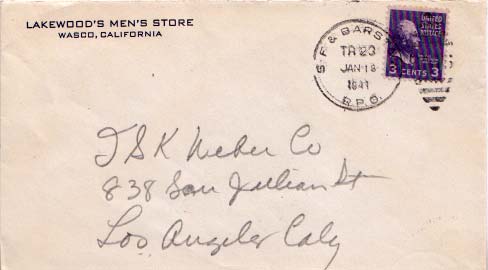 LAKEWOOD'S MEN'S STORE
WASCO, CALIFORNIA
S.F. & BARS
TR 23
JAN 18
1941
R.P.O.
UNITED
STATES
POSTAGE
3 CENTS 3
838 San Jullian St
Los Angeles Caly